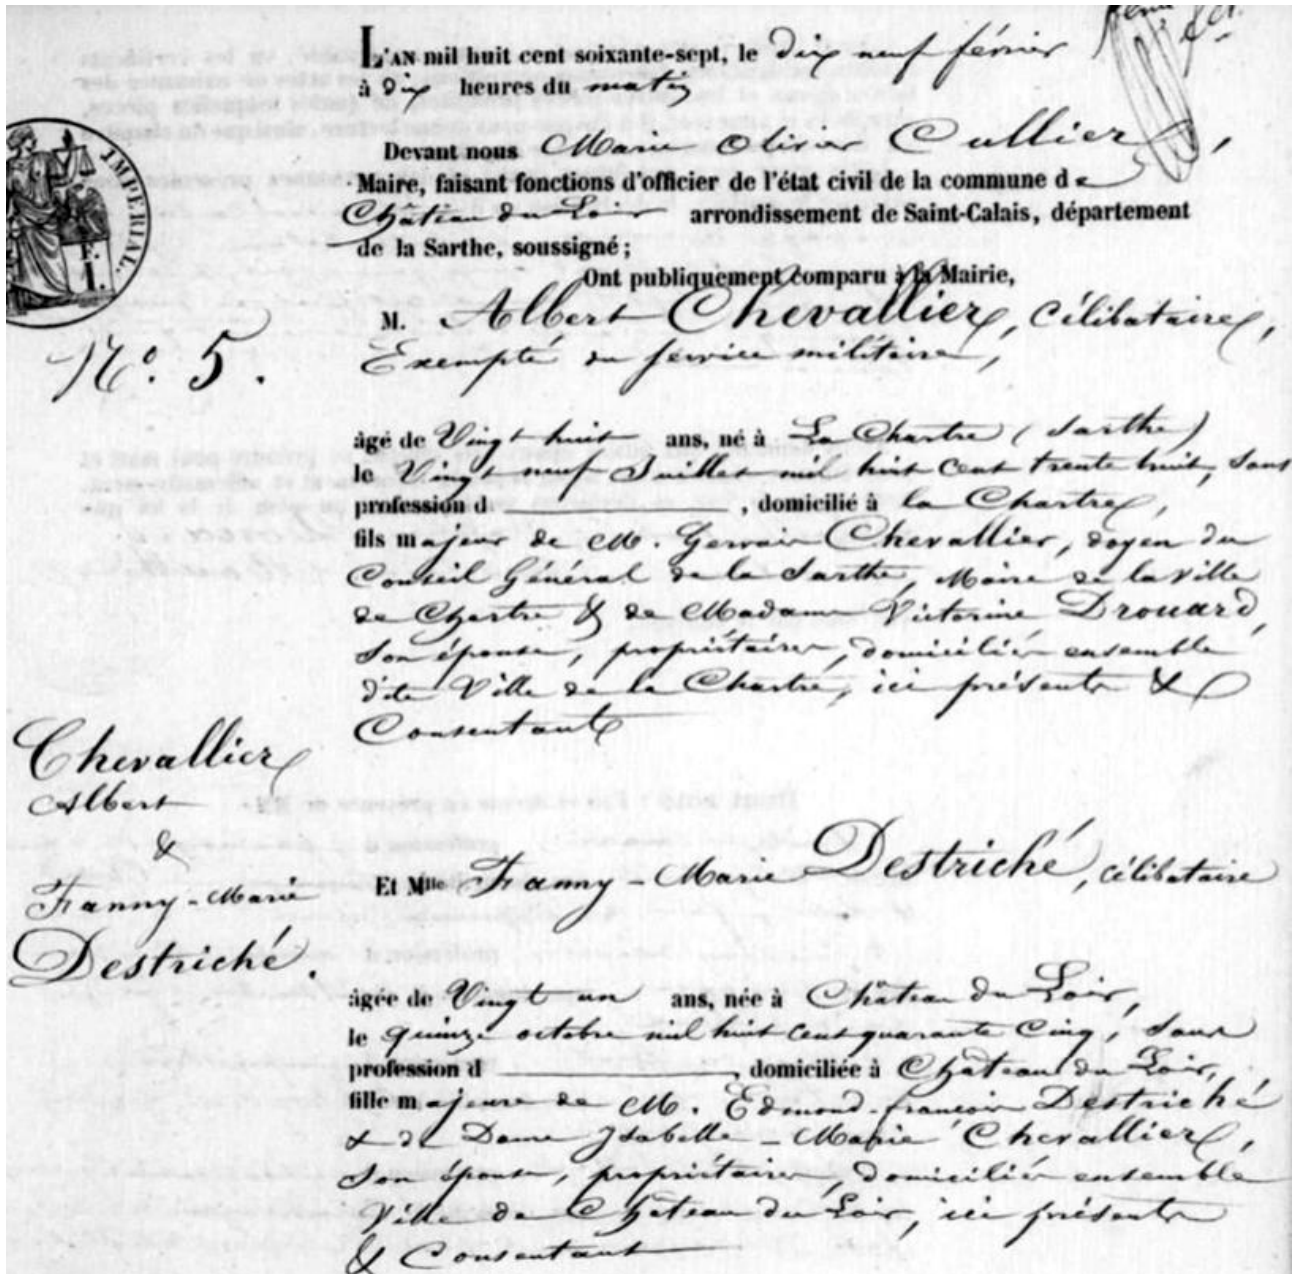 L'AN mil huit cent soixante-sept, le dix neuf février
à dix heures du matin
Devant nous Marie Olivier Cullier,
Maire, faisant fonctions d'officier de l'état civil de la commune de
Château du Loir arrondissement de Saint-Calais, département
de la Sarthe, soussigné;
Ont publiquement comparu à la Mairie,
M. Albert Chevallier, célibataire,
Exempté du service militaire,
IMPÉRIAL.
No. 5.
âgé de Vingt huit ans, né à La Chartre (Sarthe)
le Vingt neuf Juillet mil huit cent trente huit, sans
profession d , domicilié à la Chartre,
fils majeur de M. Gervais Chevallier, doyen du
Conseil Général de la Sarthe, Maire de la ville
de Chartre & de Madame Victorine Drouard,
son épouse, propriétaires, domiciliés ensemble
dite Ville de la Chartre, ici présents &
Consentants
Chevallier
Albert
&
Fanny-Marie
Destriché.
Et Mlle Fanny-Marie Destriché, célibataire
âgée de Vingt un ans, née à Château du Loir,
le quinze octobre mil huit cent quarante cinq, sans
profession d , domiciliée à Château du Loir,
fille majeure de M. Edmond-françois Destriché
& de Dame Isabelle-Marie Chevallier,
son épouse, propriétaires, domiciliés ensemble
Ville de Château du Loir, ici présents
& Consentant